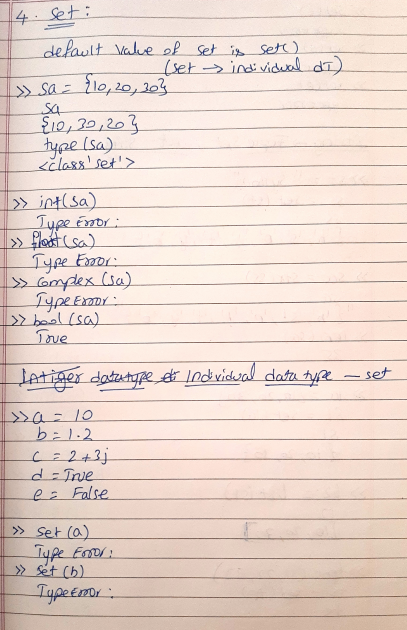 4. Set:
default value of set is set()
(set → individual dT)
>> sa = {10,20,30}
sa
{10,30,20}
type (sa)
<class 'set'>
>> int(sa)
Type Error:
>> float (sa)
Type Error:
>> complex (sa)
Type Error:
>> bool (sa)
True
Intiger datatype Individual data type — set
>> a = 10
b = 1.2
c = 2+3j
d = True
e = False
>> set (a)
Type Error:
>> set (b)
Type Error: